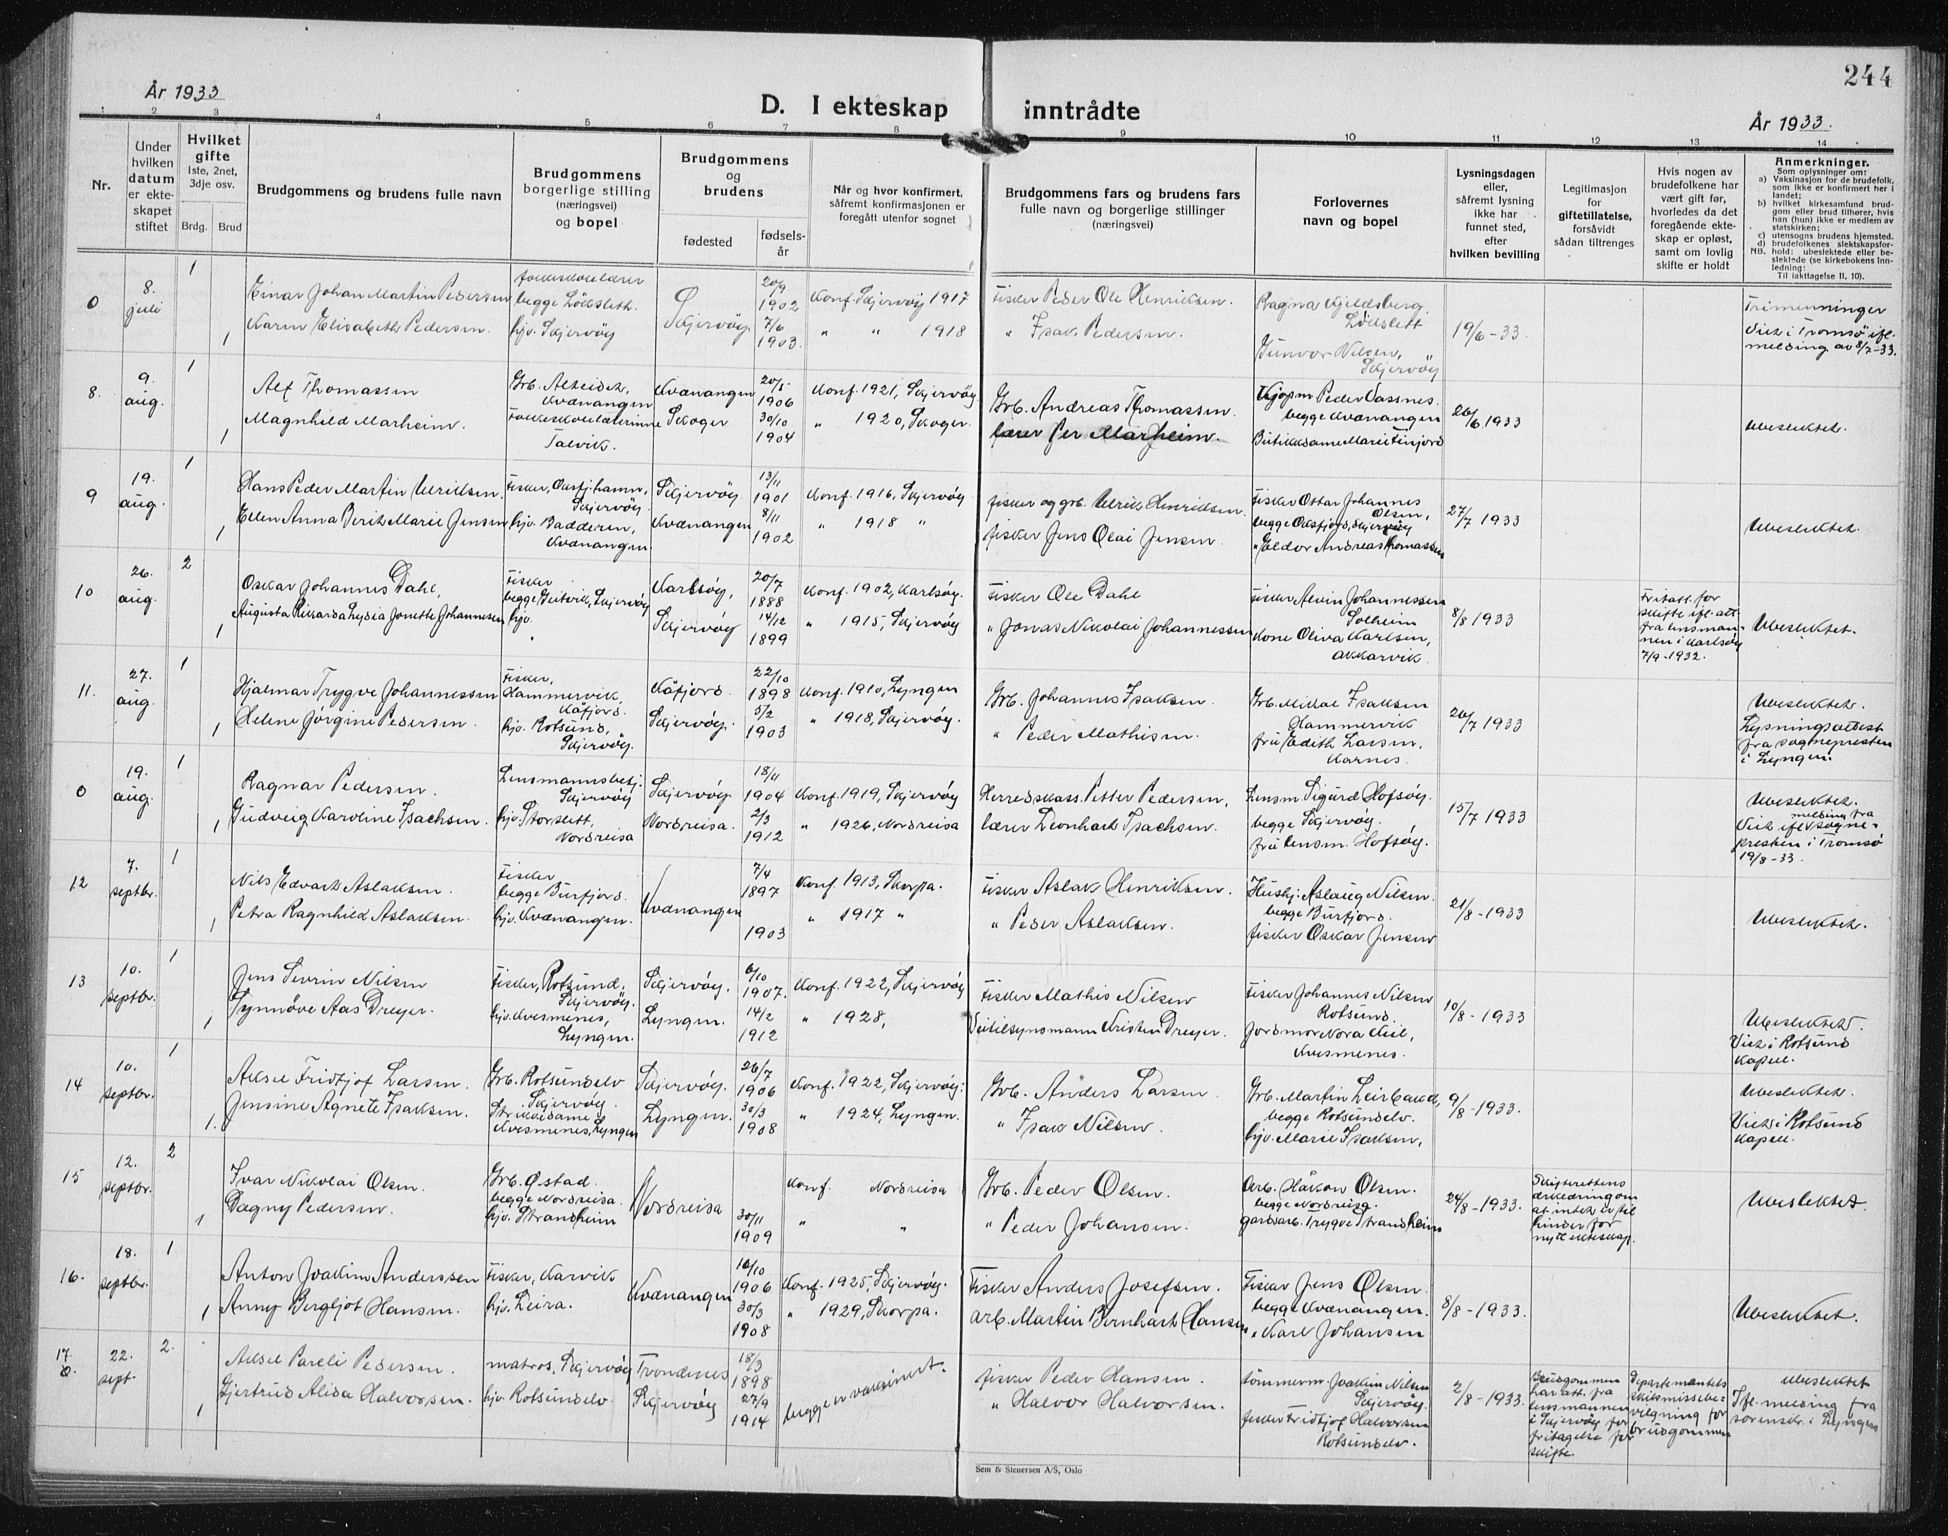 244
År 1933
D. I ekteskap inntrådte
År 1933.
1 2 3 4 5 6 7 8 9 10 11 12 13 14
Nr.
Under hvilken datum er ekte-skapet stiftet
Hvilket gifte
1ste, 2net, 3dje osv.
Brdg. Brud
Brudgommens og brudens fulle navn
Brudgommens borgerlige stilling (næringsvei) og bopel
Brudgommens og brudens
fødested
fødsels-år
Når og hvor konfirmert, såfremt konfirmasjonen er foregått utenfor sognet
Brudgommens fars og brudens fars fulle navn og borgerlige stillinger (næringsvei)
Forlovernes navn og bopel
Lysningsdagen eller, såfremt lysning ikke har funnet sted, efter hvilken bevilling
Legitimasjon for giftetillatelse, forsåvidt sådan tiltrenges
Hvis nogen av brudefolkene har vært gift før, hvorledes da det foregående ekte-skap er opløst, samt om lovlig skifte er holdt
Anmerkninger.
Som oplysninger om:
a) Vaksinasjon for de brudefolk, som ikke er konfirmert her i landet;
b) hvilket kirkesamfund brud-gom eller brud tilhører, hvis han (hun) ikke er medlem av statskirken;
c) utensogns brudens hjemsted.
d) brudefolkenes slektskapsfor-hold: ubeslektede eller be-slektede (se kirkebokens inn-ledning:
NB. Til iakttagelse II, 10).
0 8. juli 1 1
Einar Johan Martin Pedersen
Karen Elisabeth Pedersen.
folkeskolelærer
begge Lökslett.
hjv. Skjervöy
Skjervöy
20/9 1902
7/6 1903.
Konf. Skjervöy 1917
" " 1918
fisker Peder Ole Henriksen.
" Isak Pedersen.
Ragna Kjeldsberg, Lökslett
Gunvor Nilsen, Skjervöy
19/6-33.
Tremenninger
Viet i Tromsø ifl. melding av 8/7-33.
8. 9. aug. 1 1
Alf Thomassen
Magnhild Marheim.
Grb. Alteidet, Kvænangen
Folkeskolelærerinne Talvik.
Kvænangen
Skoger
20/5 1906
30/10 1904
Konf. 1921, Skjervöy.
" 1920, Skoger.
Grb. Andreas Thomassen.
lærer Per Marheim.
Kjøpm Peder Vassnes.
begge Kvænangen
26/6 1933
Ubeslektet.
9 19. aug. 1 1
Hans Peder Martin Ulriksen.
Ellen Anna Berit Marie Jensen
fisker, Skjervöy.
hjv. Badderen, Kvænangen
Skjervöy.
Kvænangen
13/11 1901
8/11 1902
Konf. 1916, Skjervöy
" 1918 "
fisker og grb. Ulrik Henriksen.
fisker Jens Olai Jensen.
Fisker Ottar Johannes Olsen,
begge Oksfjord, Skjervöy
" Eldor Andreas Thomassen
27/7 1933
Ubeslektet.
10 26. aug. 2 1
Oskar Johannes Dahl,
Augusta Rikarda Lydia Jonette Johannesen
Fisker
begge Geitvik, Skjervöy
hjv. "
Karlsöy,
Skjervöy
20/7 1888
14/12 1899
Konf. 1902, Karlsöy.
" 1915, Skjervöy
Fisker Ole Dahl
" Jonas Nikolai Johannessen
Fisker Alvin Johannessen Solheim
Kone Oliva Karlsen, Akkarvik.
8/8 1933
Fritatt for skifte ifl. att. fra lensman-nen i Karlsöy 7/9-1932.
Ubeslektet.
11. 27. aug. 1 1
Hjalmar Trygve Johannessen
Helene Jörgine Pedersen.
Fisker, Hammervik, Kåfjord.
hjv. Rotsund, Skjervöy.
Kåfjord.
Skjervöy.
22/10 1898
5/2 1903
Konf. 1910, Lyngen
" 1918, Skjervöy.
Grb. Johannes Isaksen.
" Peder Mathisen.
Grb. Mikal Isaksen Hammervik
fru Edith Larsen, Karnes.
26/7 1933
Ubeslektet.
Lysningsattest fra sognepresten i Lyngen.
0 19. aug. 1 1
Ragnar Pedersen.
Gudveig Karoline Isachsen.
Lensmannsbetj. Skjervöy
hjv. Storslett, Nordreisa
Skjervöy.
Nordreisa.
18/11 1904
2/3 1912
Konf. 1919, Skjervöy
" 1926, Nordreisa
Herredskass. Petter Pedersen,
lærer Leonhark Isachsen.
Lensm. Sigurd Hofsöy.
begge Skjervöy.
fru lensm. Hofsöy.
15/7 1933
Ubeslektet.
Viet ifl. melding fra sogne-presten i Tromsø 19/8-33.
12 7. septbr. 1 1
Nils Edvart Aslaksen.
Petra Ragnhild Aslaksen.
Fisker
begge Burfjord.
hjv. Kvænangen.
Kvænangen
7/4 1897
1903
Konf. 1913, Skorpa.
" 1917 "
Fisker Aslak Henriksen.
" Peder Aslaksen.
Hushj. Aslaug Nilsen.
begge Burfjord.
fisker Oskar Jensen
21/8-1933
Ubeslektet.
13 10. septbr. 1 1
Jens Severin Nilsen
Synnöve Aas Dreyer.
Fisker, Rotsund, Skjervöy.
hjv. Kvesmenes, Lyngen.
Skjervöy.
Lyngen.
6/10 1907.
14/2 1912
Konf. 1922, Skjervöy
" 1928,
Fisker Mathis Nilsen
Veitilsynsmann Kristen Dreyer.
Fisker Johannes Nilsen Rotsund.
Jordmor Nora Keil, Kvesmenes.
10/8-1933
Ubeslektet.
Viet i Rotsund kapell.
14 10. septbr. 1 1.
Aksel Fridtjof Larsen.
Jensine Agnete Isaksen.
Grb. Rotsundelv Skjervöy.
Strikkedame Kvesmenes, Lyngen
Skjervöy.
Lyngen.
26/7 1906
30/3 1908
Konf. 1922, Skjervöy.
" 1924, Lyngen.
Grb. Anders Larsen.
" Isak Nilsen.
Grb. Martin Leirbakk,
begge Rotsundelv.
hjv. Marie Isaksen,
9/8-1933.
Ubeslektet.
Viet i Rotsund kapell.
15 12. septbr. 2 1
Ivar Nikolai Olsen.
Dagny Pedersen.
Grb. Østad.
begge Nordreisa.
hjv. Strandheim
Nordreisa
30/11 1909
Konf. Nordreisa
" "
Grb. Peder Olsen.
" Peder Johansen.
Arb. Håkon Olsen.
begge Nordreisa.
gardsarb. Trygve Strandheim
24/8-1933.
Skifterettens erkledning om at intet er til hinder for nytt ekteskap.
Ubeslektet.
16. 18. septbr. 1 1
Anton Joakim Anderssen
Anny Bergljot Hansen.
Fisker, Karvik
hjv. Leira.
Kvænangen
16/10 1906
30/3 1908
Konf. 1925, Skjervöy.
" 1929, Skorpa.
Fisker Anders Josefsen.
arb. Martin Bernhart Hansen
Fisker Jens Olsen
begge Kvænangen.
" Karl Johansen
8/8-1933.
Ubeslektet.
17. 0. 22. sept. 2. 1
Aksel Pareli Pedersen.
Gjertrud Alida Halvorsen.
matros, Skjervöy
hjv. Rotsundelv.
Trondenes
Skjervöy
18/3 1898
27/9 1914
begge er vaksinert.
fisker Peder Hansen.
" Halvor Halvorsen.
tömmerm. Joakim Nilsen Skjervöy.
fisker Fridtjof Halvorsen Rotsundelv.
2/8-1933.
Brudgommen har att. fra lensmannen i Skjervöy for fritagelse for skifte.
Departementets skilsmissebe-vilgning for brudgommen
Ubeslektet
Ifl. melding fra sorenskr. i Lyngen
Sem & Stenersen A/S, Oslo